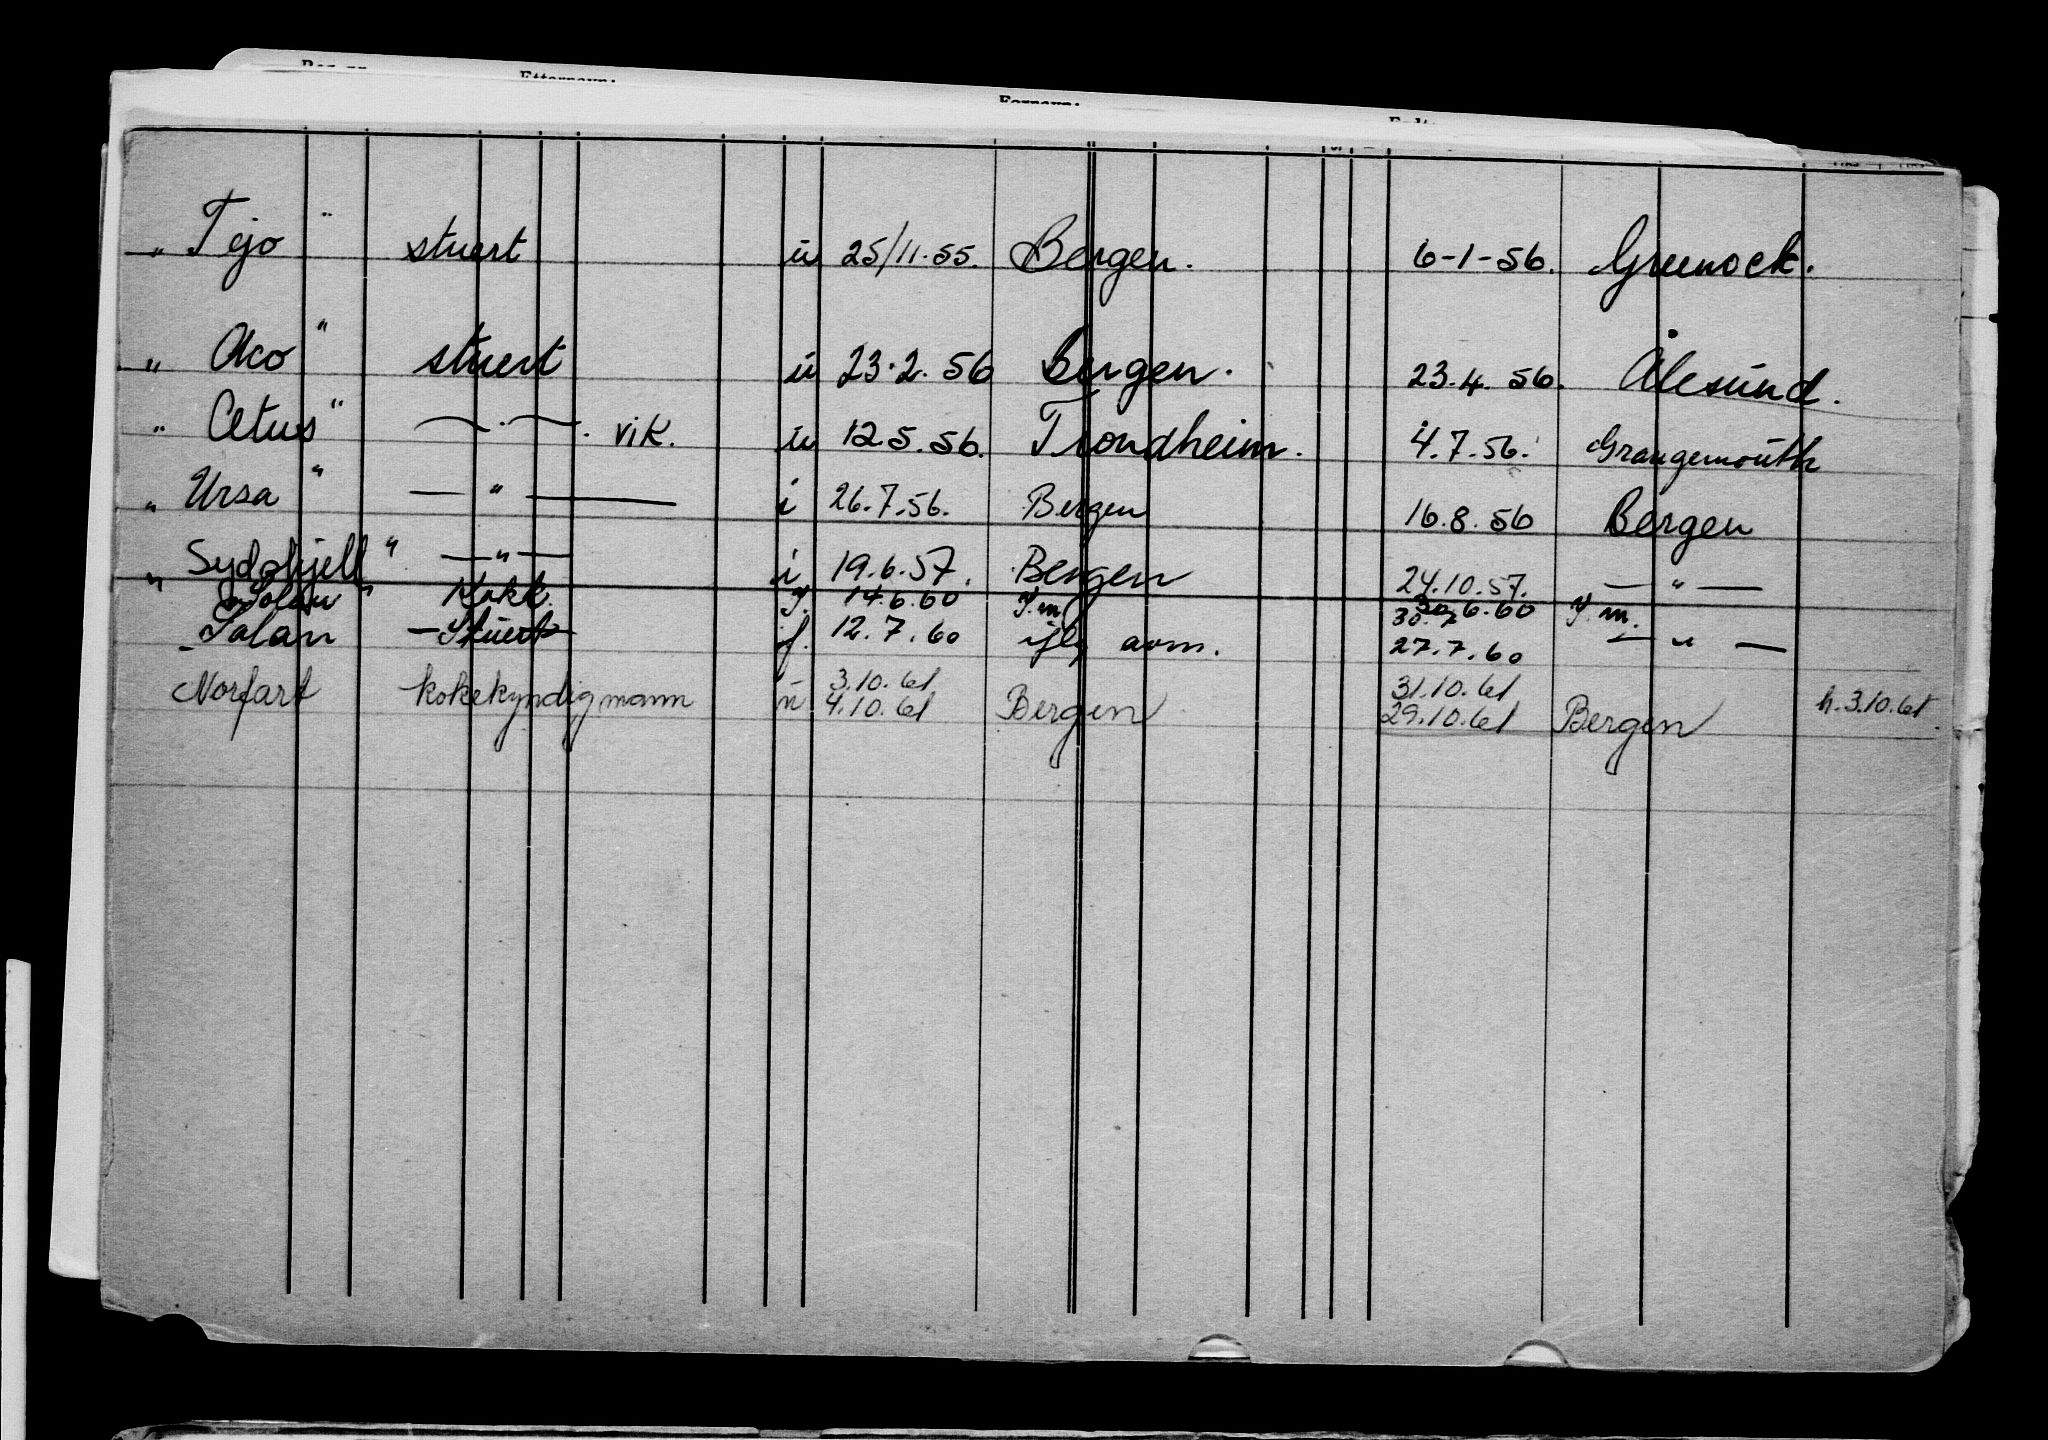 Etternavn:
Fornavn:
„ Tejo " stuert u 25/11.55. Bergen. 6-1-56. Greenock.
„ Oco " stuert u 23.2.56 Bergen. 23.4.56. Ålesund.
„ Cetus " —.—. vik. u 12.5.56. Trondheim. 4.7.56. Grangemouth
„ Ursa " — " — i 26.7.56. Bergen 16.8.56 Bergen
„ Sydghjell " — " — i 19.6.57. Bergen 24.10.57. — " —
Kokk. 14.6.60 Y.m. 30.6.60 Y.m.
Salan Stuert f. 12.7.60 iflg avm. 27.7.60 — " —
Norfart kokekyndig mann u 3.10.61 31.10.61
4.10.61 Bergen 29.10.61 Bergen h. 3.10.61.